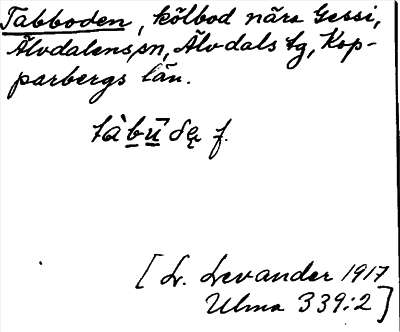 Tabboden, kölbod nära Gessi,
Älvdalens sn, Älvdals tg, Kop-
parbergs län.
tàbū̱δę f.
[L. Levander 1917
Ulma 339:2]